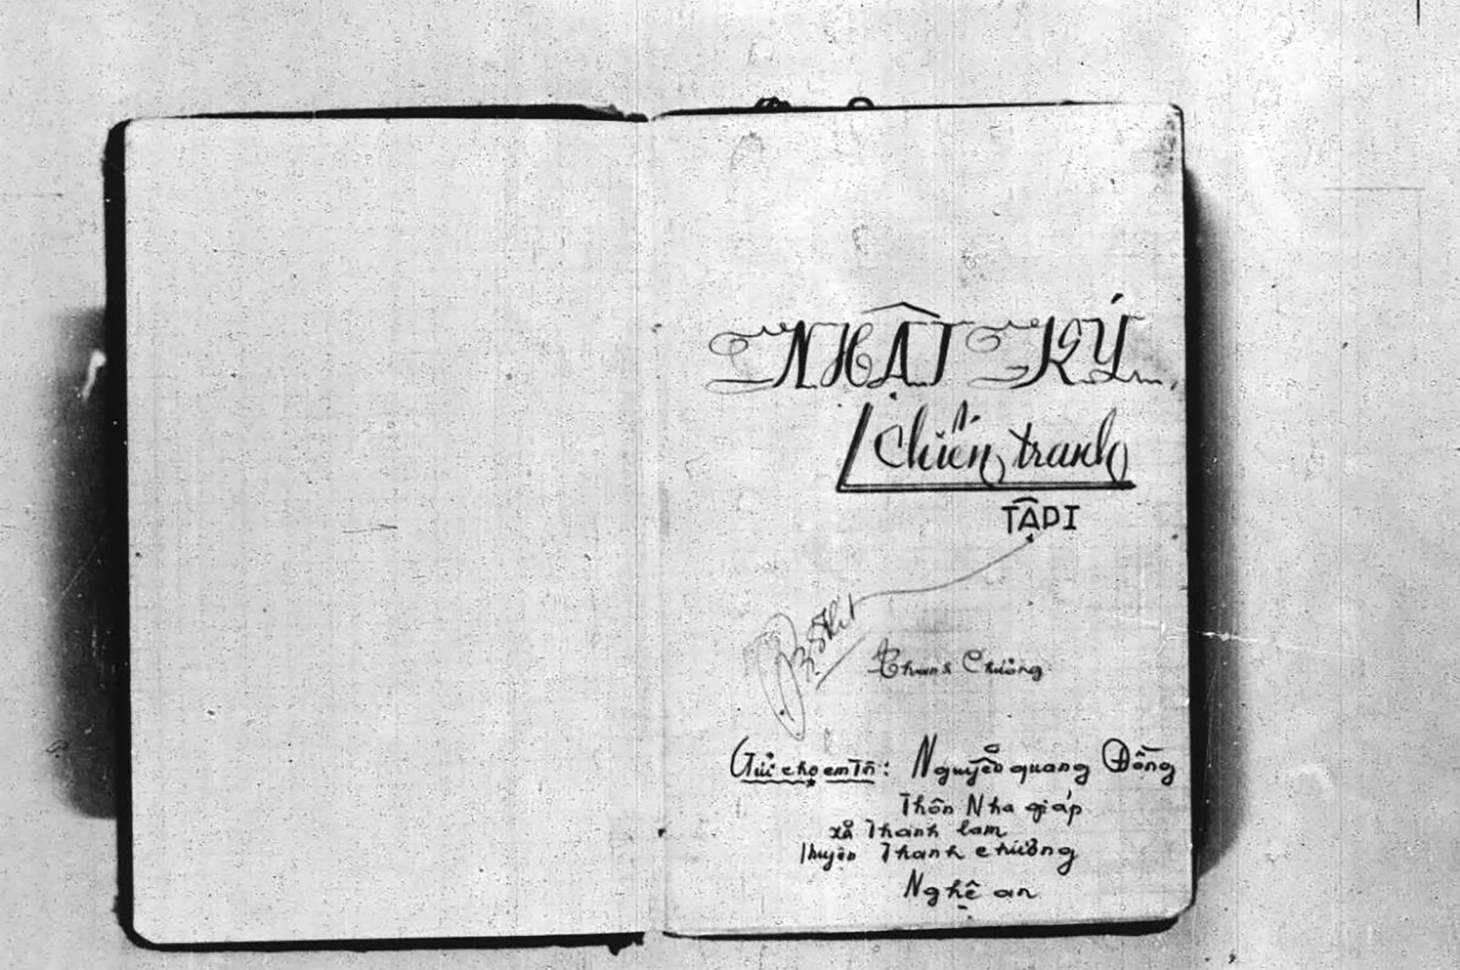 NHẬT KÝ
Chiến tranh
TẬP I
Thanh Chương
Gửi cho em Tn: Nguyễn quang Đồng
Thôn Nha giáp
xã Thanh lam
Huyện Thanh chương
Nghệ an